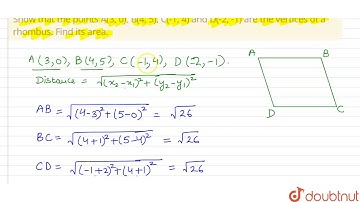 Show that the points A(3, 0), B(4, 5), C(-1, 4) and D(-2, -1) are the vertices of a
rhombus. Find its area.
A (3,0), B (4,5), C (-1,4), D (-2,-1).
Distance = √(x₂-x₁)²+(y₂-y₁)²
AB = √(4-3)²+(5-0)² = √26
BC = √(4+1)²+(5-4)² = √26
CD = √(-1+2)²+(4+1)² = √26
A B
D C
doubtnut